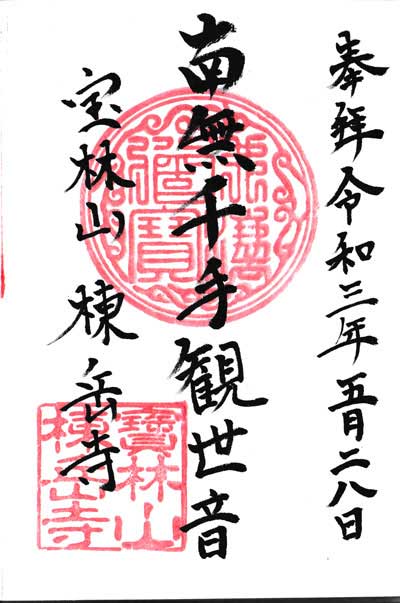 奉拜令和三年五月二八日
南無千手観世音
宝林山 棟岳寺
佛法僧寳
寶林山
棟岳寺